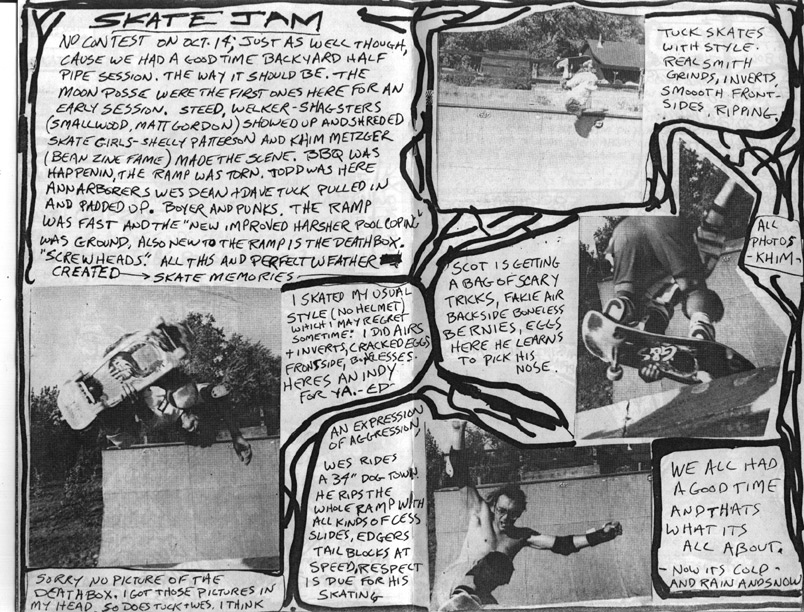 SKATE JAM
NO CONTEST ON OCT. 14, JUST AS WELL THOUGH,
CAUSE WE HAD A GOOD TIME BACKYARD HALF
PIPE SESSION. THE WAY IT SHOULD BE. THE
MOON POSSE WERE THE FIRST ONES HERE FOR AN
EARLY SESSION. STEED, WELKER-SHAGSTERS
(SMALLWOOD, MATT GORDON) SHOWED UP AND SHREDED
SKATE GIRLS-SHELLY PATTERSON AND KHIM METZGER
(BEAN ZINE FAME) MADE THE SCENE. BBQ WAS
HAPPENIN, THE RAMP WAS TORN. TODD WAS HERE
ANN ARBORERS WES DEAN + DAVE TUCK PULLED IN
AND PADDED UP. BOYER AND PUNKS. THE RAMP
WAS FAST AND THE "NEW IMPROVED HARSHER POOL COPING"
WAS GROUND, ALSO NEW TO THE RAMP IS THE DEATHBOX.
"SCREWHEADS." ALL THIS AND PERFECT WEATHER
CREATED → SKATE MEMORIES
TUCK SKATES
WITH STYLE.
REAL SMITH
GRINDS, INVERTS,
SMOOOTH FRONT-
SIDES, RIPPING.
ALL
PHOTOS
-KHIM-
I SKATED MY USUAL
STYLE (NO HELMET)
WHICH I MAY REGRET
SOMETIME. I DID AIRS
+ INVERTS, CRACKED EGGS
FRONTSIDE, BONELESSES.
HERES AN INDY
FOR YA.-ED-
SCOT IS GETTING
A BAG OF SCARY
TRICKS, FAKIE AIR
BACKSIDE BONELESS
BERNIES, EGGS
HERE HE LEARNS
TO PICK HIS
NOSE.
AN EXPRESSION
OF AGGRESSION,
WES RIDES
A 34" DOG TOWN.
HE RIPS THE
WHOLE RAMP WITH
ALL KINDS OF CESS
SLIDES, EDGERS
TAIL BLOCKS AT
SPEED, RESPECT
IS DUE FOR HIS
SKATING
WE ALL HAD
A GOOD TIME
AND THATS
WHAT ITS
ALL ABOUT.
- NOW ITS COLD -
AND RAIN AND SNOW
SORRY NO PICTURE OF THE
DEATHBOX. I GOT THOSE PICTURES IN
MY HEAD. SO DOES TUCK + WES. I THINK